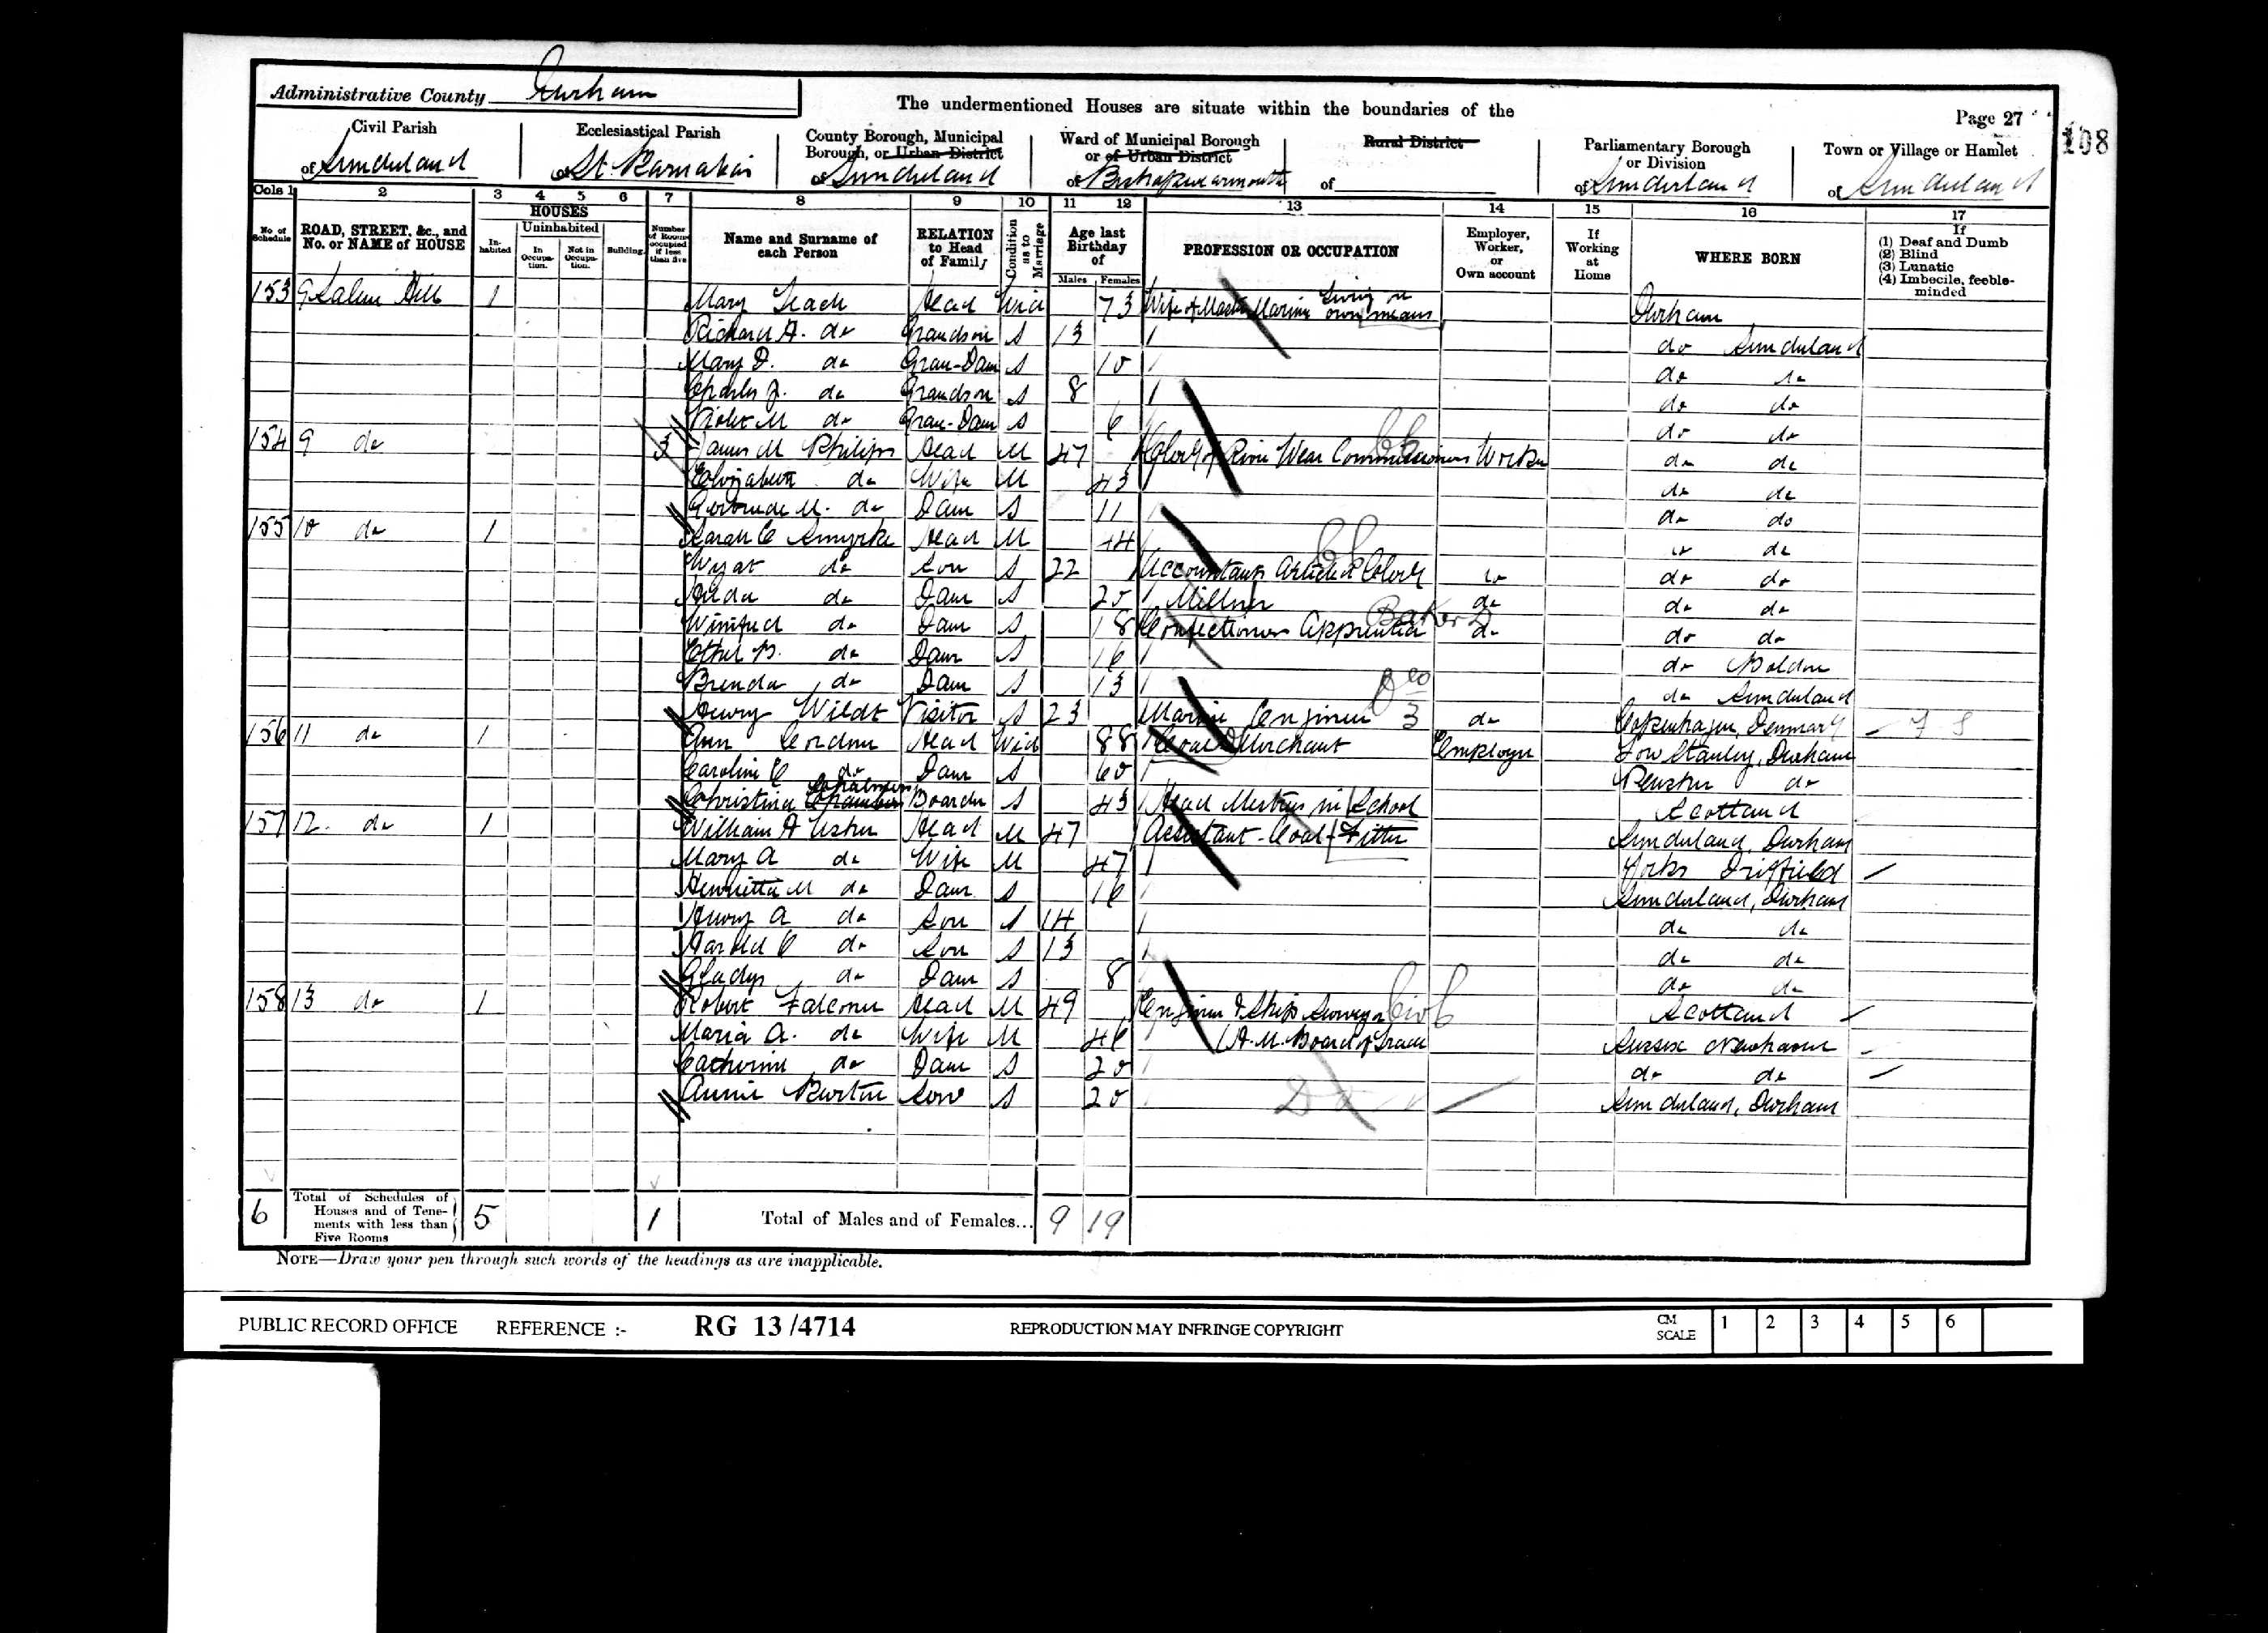 Administrative County Durham
The undermentioned Houses are situate within the boundaries of the
Page 27
108
Civil Parish
of Sunderland
Ecclesiastical Parish
of St. Barnabas
County Borough, Municipal
Borough, or Urban District
of Sunderland
Ward of Municipal Borough
or of Urban District
of Bishopwearmouth
Rural District
of
Parliamentary Borough
or Division
of Sunderland
Town or Village or Hamlet
of Sunderland
Cols 1 2 3 4 5 6 7 8 9 10 11 12 13 14 15 16 17
No. of Schedule
ROAD, STREET, &c., and No. or NAME of HOUSE
HOUSES
In-habited
Uninhabited
In Occupa-tion.
Not in Occupa-tion.
Building
Number of Rooms occupied if less than five
Name and Surname of each Person
RELATION to Head of Family
Condition as to Marriage
Age last Birthday of
Males Females
PROFESSION OR OCCUPATION
Employer, Worker, or Own account
If Working at Home
WHERE BORN
If
(1) Deaf and Dumb
(2) Blind
(3) Lunatic
(4) Imbecile, feeble-minded
153 9 Salem Hill 1 Mary Head 73 Wife of Master Mariner Living on own means Durham
Richard A. do Grandson S 13 do Sunderland
Mary D. do Gran-Daur S 10 do do
Charles J. do Grandson S 8 do do
Violet M do Gran-Daur S 6 do do
154 9 do 3 James M Philips Head M 47 Clerk of River Wear Commissioners Worker do do
Elizabeth do Wife M 43 do do
Gertrude M. do Daur S 11 do do
155 10 do 1 Sarah C Head M 44 do do
do Son S 22 Accountants Articled Clerk do do do
Hilda do Daur S 20 Milliner do do do
Winifred do Daur S 18 Confectioners Apprentice Baker do do do
Ethel B. do Daur S 16 do Boldon
Brenda do Daur S 13 do Sunderland
Henry Wildt Visitor S 23 Marine Engineer 3 do Copenhagen, Denmark
156 11 do 1 Ann Head Wid 88 Coal Merchant Employer Low Stanley, Durham
Caroline C do Daur S 60 do
Christina Chalmers Boarder S 43 Head Mistress in School Scotland
157 12. do 1 William A Usher Head M 47 Assistant - Coal Fitter Sunderland, Durham
Mary A do Wife M 47 Yorks Driffield
Henrietta M do Daur S 16 Sunderland, Durham
Henry A do Son S 14 do do
Harold C do Son S 13 do do
Gladys do Daur S 8 do do
158 13 do 1 Robert Falconer Head M 49 Engineer & Ship Surveyor Scotland
Maria A. do Wife M 46 (H.M. Board of Trade Sussex Newhaven
Catherine do Daur S 20 do do
Annie Burton Serv S 20 Sunderland, Durham
6 Total of Schedules of Houses and of Tene-ments with less than Five Rooms 5 1 Total of Males and of Females... 9 19
NOTE—Draw your pen through such words of the headings as are inapplicable.
PUBLIC RECORD OFFICE REFERENCE :- RG 13/4714 REPRODUCTION MAY INFRINGE COPYRIGHT CM SCALE 1 2 3 4 5 6